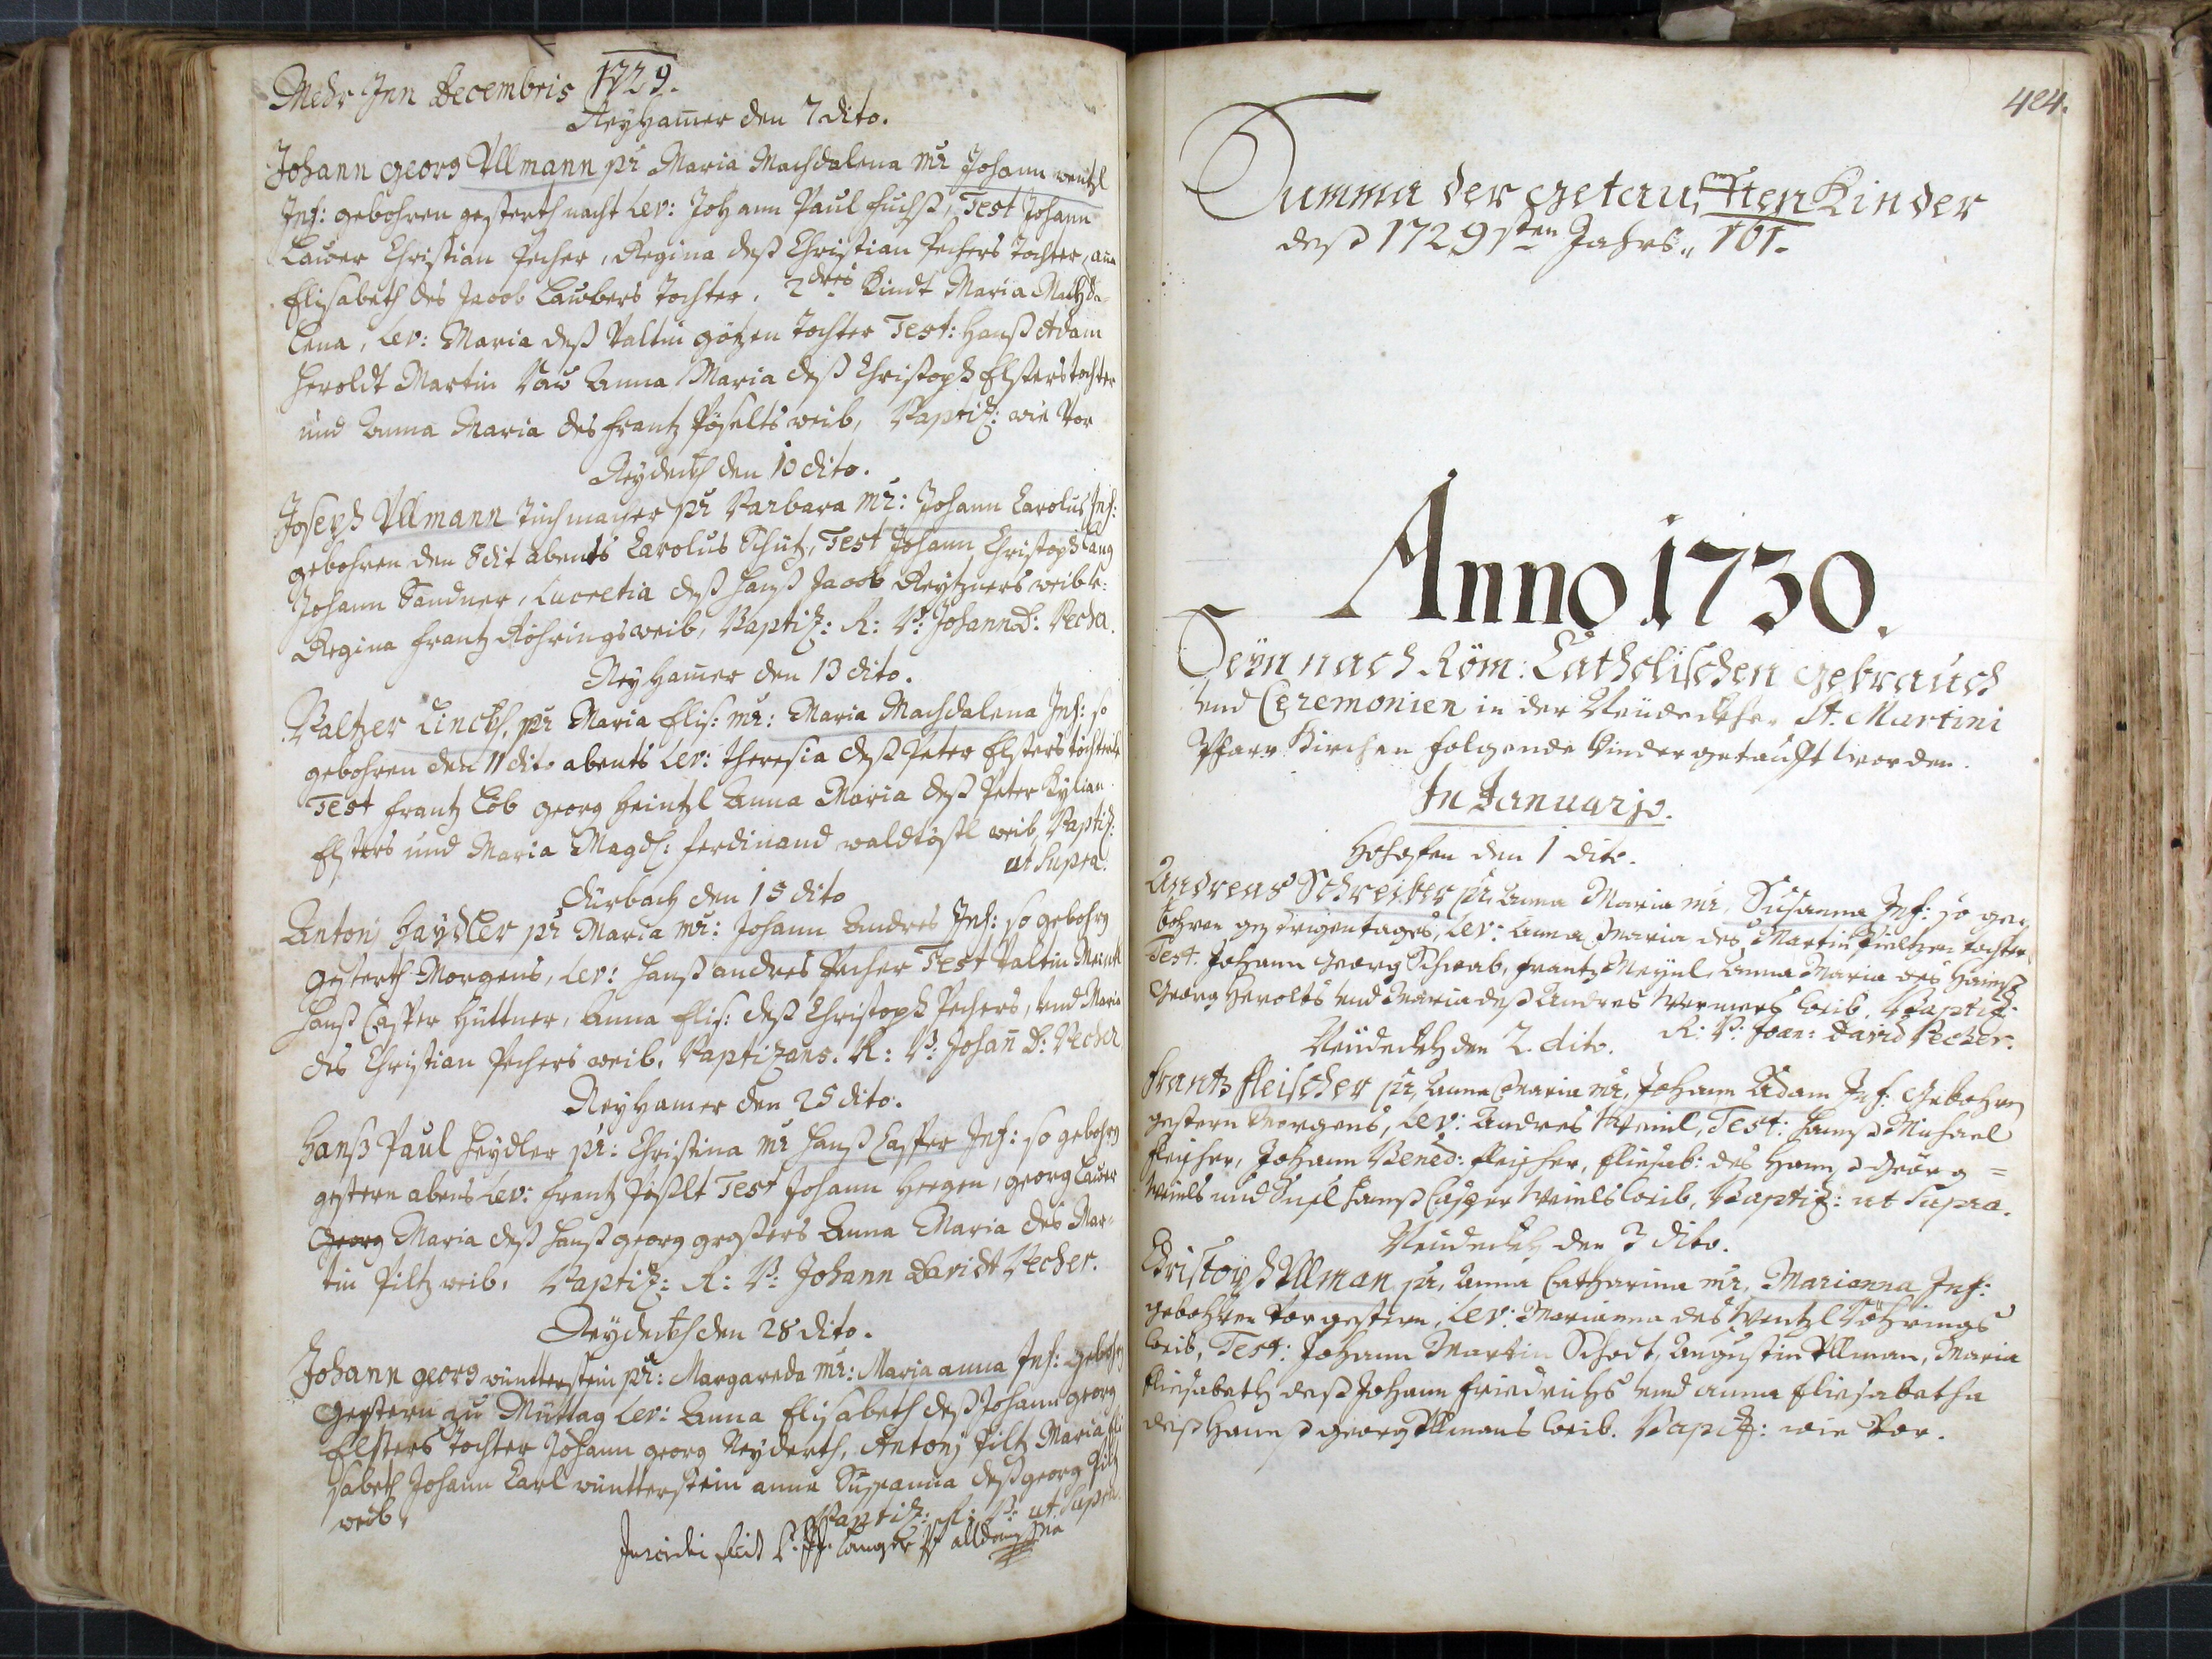 Mehr Inn Decembris 1729.
Neyhamer den 7 dito.
Johann georg Ullmann pr Maria Machdalena mr Johann wentzl
Inf: gebohren gesterth nacht Lev: Johann Paul fuchß, Test Johann
Lauer Christian Pecher, Regina deß Christian Pechers Tochter, ana
Elisabeth des Jacob Laubers Tochter. 2dres Kindt Maria Machda-
lena, Lev: Maria deß Valtin götzen Tochter Test: Hanß Adam
Heroldt Martin Anna Maria deß Christoph Elsters tochter
und Anna Maria des frantz Pöselts weib, Baptiz: wie Vor
Neydeckh den 10 dito.
Joseph Ullmann Tuchmacher pr Barbara mr: Johann Carolus Inf:
gebohren den 8 dit abents Carolus Schütz, Test Johann Christoph Lang
Johann Sandner, Lucretia deß Hanß Jacob weib
Regina frantz Röhrings weib, Baptiz: R: P: Johann D: Pecher.
Neyhamer den 13 dito.
Baltzer Linckh, pr Maria Elis: mr: Maria Machdalena Inf: so
gebohren den 11 dito abents Lev: Theresia deß Peter Elsters töchterle
Test frantz Löb georg Heintzl Anna Maria deß Peter Kylian
Elsters und Maria Magd: ferdinand weib, Baptiz:
ut Supra.
Dürbach den 15 dito
Antonj Haydler pr Maria mr: Johann Andres Inf: so gebohrn
gesterth Morgens, Lev: Hanß andres Pecher Test Valtin Meinl
Hanß Casper Hüttner, Anna Elis: deß Christoph Pechers, und Maria
des Christian Pechers weib. Baptizans. R: P: Johann D: Pecher
Neyhamer den 25 dito.
Hanß Paul Heydler pr: Christina mr Hanß Casper Inf: so gebohrn
gestern abens Lev: frantz Pöselt Test Johann georg Lauer
Georg Maria deß Hanß georg Anna Maria des Mar-
tin Piltz weib. Baptiz: R: P: Johann Davidt Pecher.
Neydeckh den 28 dito.
Johann georg wuntterstein pr: Margareda mr: Maria anna Inf: gebohrn
gestern zu Mittag Lev: Anna Elisabeth deß Johann georg
Elsters Tochter Johann georg Neyderth, Antonj Piltz Maria Eli
sabeth Johann Carl wuntterstein anna Susanna deß georg Piltz
weib,
Baptiz: R: P: ut Supra.
424.
Summa der getaufften Kinder
deß 1729sten Jahrs, 101.
Anno 1730.
Seyn nach Röm: Catholischen gebrauch
und Ceremonien in der Neudeckher St. Martini
Pfarr Kirchen folgende Kinder getaufft worden.
In Januarjo.
Hohofen den 1 dito.
Andreas Schreiber pr, Anna Maria mr, Susanna Inf: so ge-
bohren Lev: Anna Maria des Martin tochter
Test: Johann Georg Schwab, frantz Meynl, Anna Maria des Hannß
Georg Herolts und Maria deß Andres weib. Baptiz:
R: P: Joan: David Pecher.
Neudeckh den 2. dito.
Frantz fleischer pr, Anna Maria mr, Johann Adam Inf: gebohrn
gestern Morgens, Lev: Andres Test: Hannß Michael
fleischer, Johann Bened: fleischer, Eliesab: des Hannß Georg =
und Hannß Casper weib, Baptiz: ut Supra.
Neudeckh den 3 dito.
Christoph Ullman pr, Anna Catharina mr, Marianna Inf:
gebohren vorgestern, Lev: Marianna des Wentzl Röhrings
weib, Test: Johann Martin Schodt, Augustin Ullman, Maria
Eliesabeth deß Johann friedrichs und anna Eliesabetha
deß Hannß georg Ullmans weib. Bapiz: wie vor.